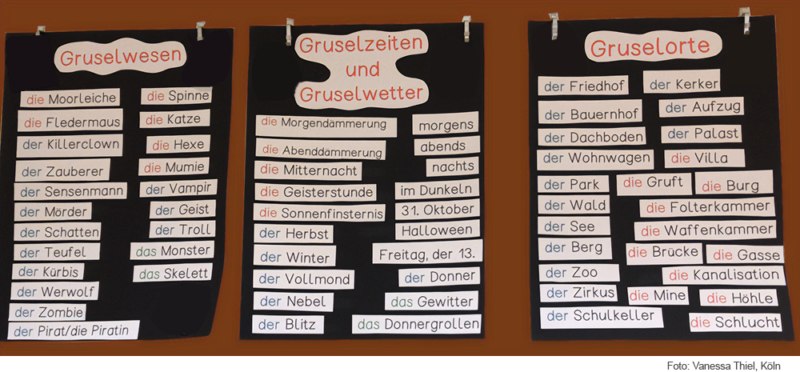 Gruselwesen
die Moorleiche
die Spinne
die Fledermaus
die Katze
der Killerclown
die Hexe
der Zauberer
die Mumie
der Sensenmann
der Vampir
der Mörder
der Geist
der Schatten
der Troll
der Teufel
das Monster
der Kürbis
das Skelett
der Werwolf
der Zombie
der Pirat/die Piratin
Gruselzeiten
und
Gruselwetter
die Morgendämmerung
morgens
die Abenddämmerung
abends
die Mitternacht
nachts
die Geisterstunde
im Dunkeln
die Sonnenfinsternis
31. Oktober
der Herbst
Halloween
der Winter
Freitag, der 13.
der Vollmond
der Donner
der Nebel
das Gewitter
der Blitz
das Donnergrollen
Gruselorte
der Friedhof
der Kerker
der Bauernhof
der Aufzug
der Dachboden
der Palast
der Wohnwagen
die Villa
der Park
die Gruft
die Burg
der Wald
die Folterkammer
der See
die Waffenkammer
der Berg
die Brücke
die Gasse
der Zoo
die Kanalisation
der Zirkus
die Mine
die Höhle
der Schulkeller
die Schlucht
Foto: Vanessa Thiel, Köln